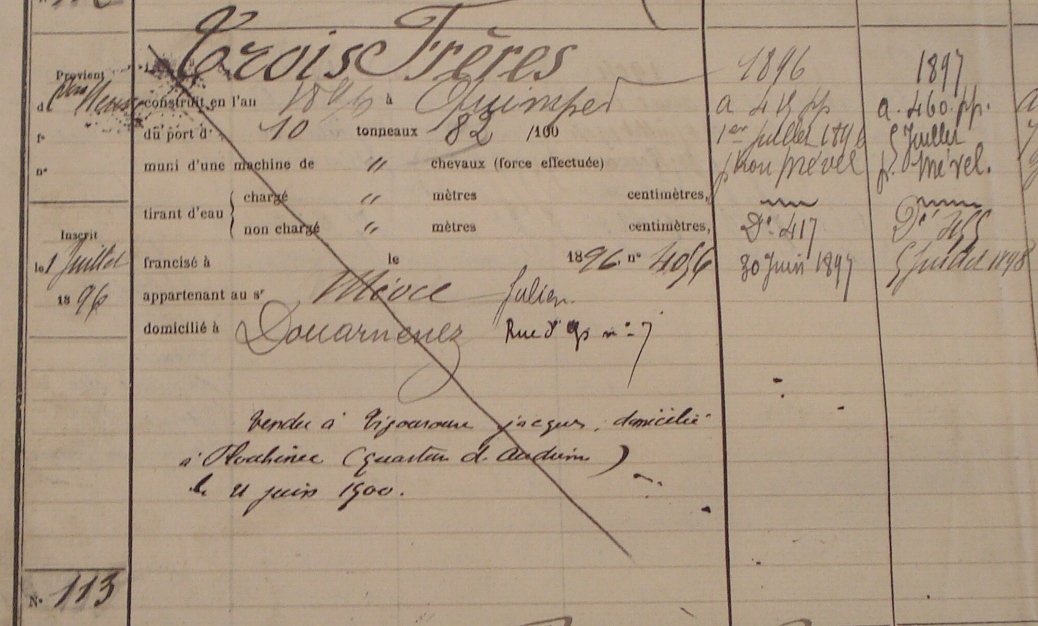 Trois Frères
Provient
d
f°
n°
Inscrit
le 1 Juillet
1896
N° 113
construit en l'an 1896 à Quimper
du port d' 10 tonneaux 82 /100
muni d'une machine de " chevaux (force effectuée)
tirant d'eau
chargé " mètres centimètres,
non chargé " mètres centimètres,
francisé à le 1896, n° 4056
appartenant au sr Julien.
domicilié à Douarnenez Rue d' n° 7
Vendu à jacques, domicilié
à (quartier d'Audierne)
le 21 juin 1900.
1896
a 419 pp
1er Juillet 1896
pon Mével
Dt 417
30 Juin 1897
1897
a. 460. pp.
5 Juillet
p. Mével.
Dt
5 Juillet 1898